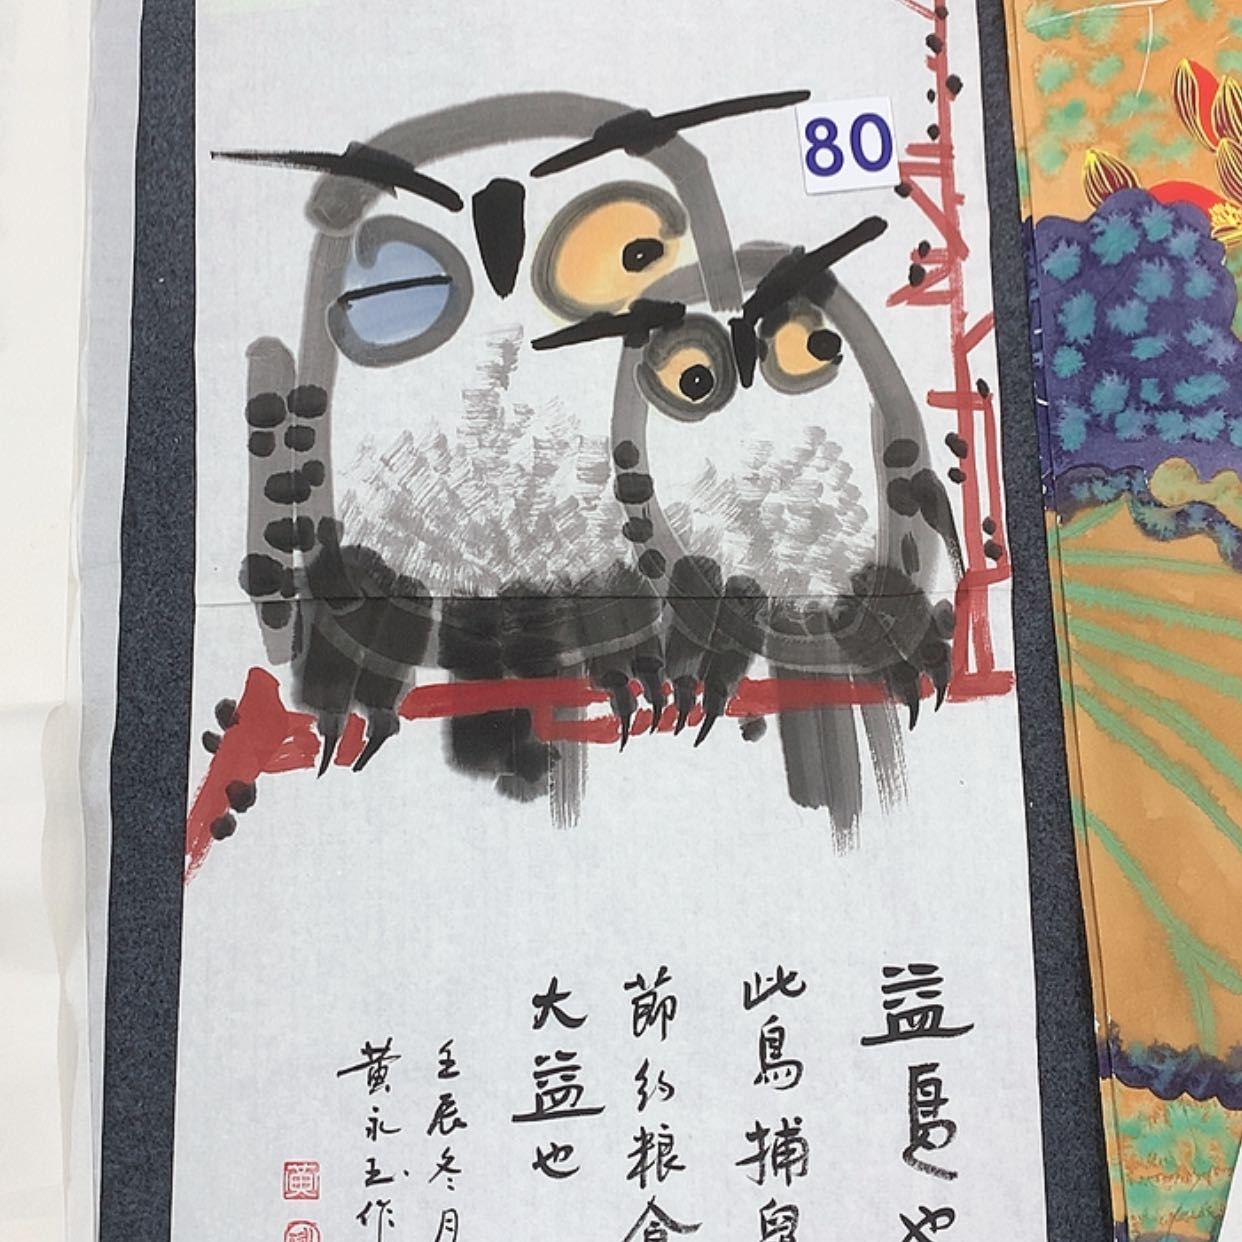 80
益鳥也
此鳥捕鼠
節約粮食
大益也
壬辰冬月
黄永玉作
黄